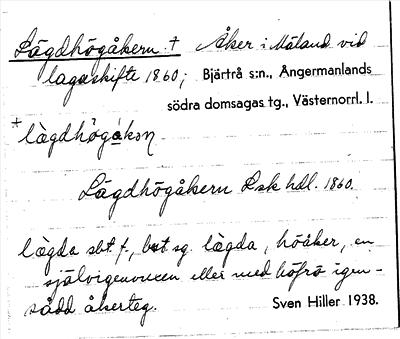 Lägdhögåkern † Åker i Måland vid
lagaskifte 1860; Bjärtrå s:n., Ångermanlands
södra domsagas tg., Västernorrl. l.
+
lægdhögåkꞥ
Lägdhögåkern Lsk hdl. 1860.
lægda sbt. f., best sg. lægda, höåker, en
självigenvuxen eller med höfrö igen-
sådd åkerteg. Sven Hiller 1938.